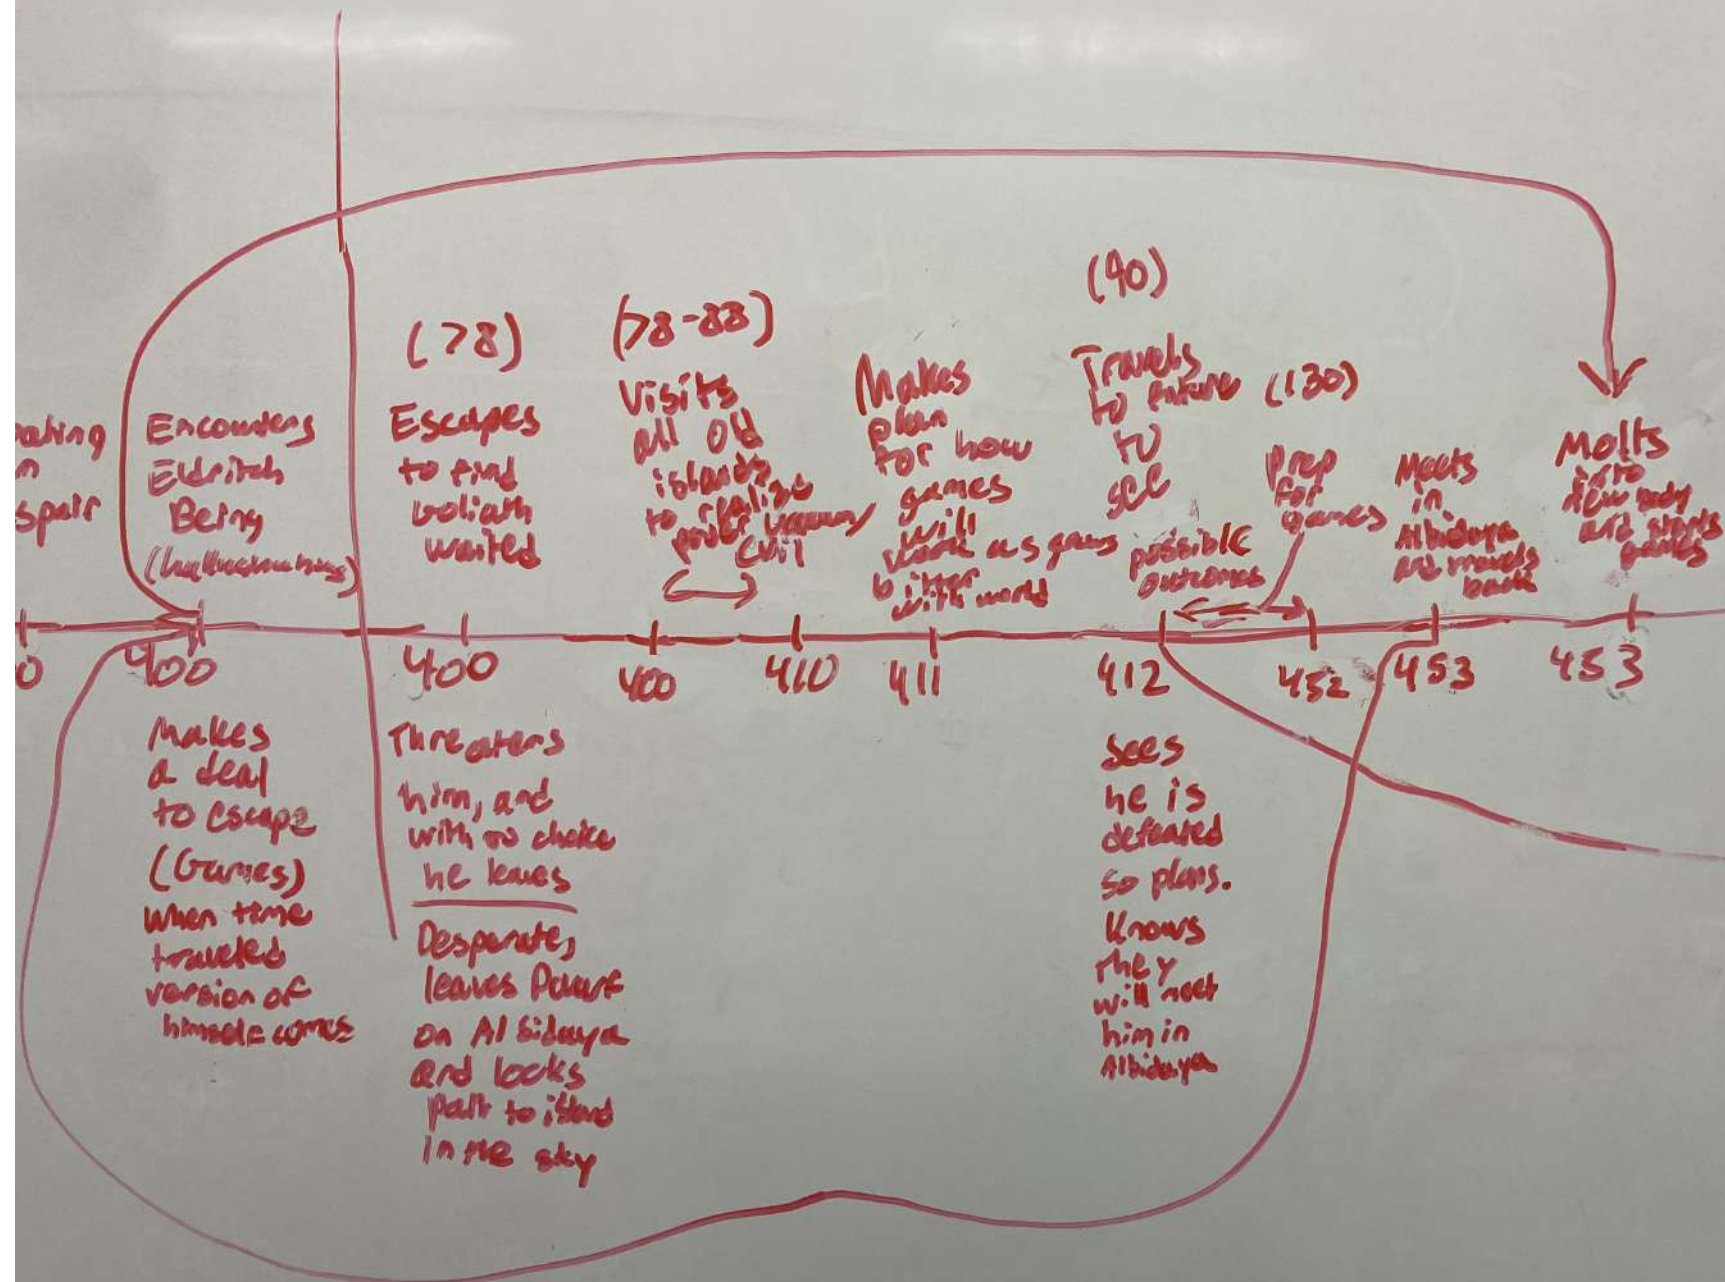 (78)
(78-88)
(90)
(130)
ating
n
spair
Encounters
Eldritch
Being
(hallucinations)
Escapes
to find
Goliath
waited
Visits
all old
islands
to realize
power vacuum/
evil
Makes
plan
for how
games
will
work as grows
bitter
with world
Travels
to future
to
see
possible
outcomes
Prep
for
games
Meets
in
Albidaya
and travels
back
Molts
into
new body
and starts
games
0
400
400
400
410
411
412
452
453
453
Makes
a deal
to escape
(Games)
when time
traveled
version of
himself comes
Threatens
him, and
with no choice
he leaves
Desperate,
leaves
on Albidaya
and locks
path to island
in the sky
Sees
he is
defeated
so plans.
Knows
they
will meet
him in
Albidaya